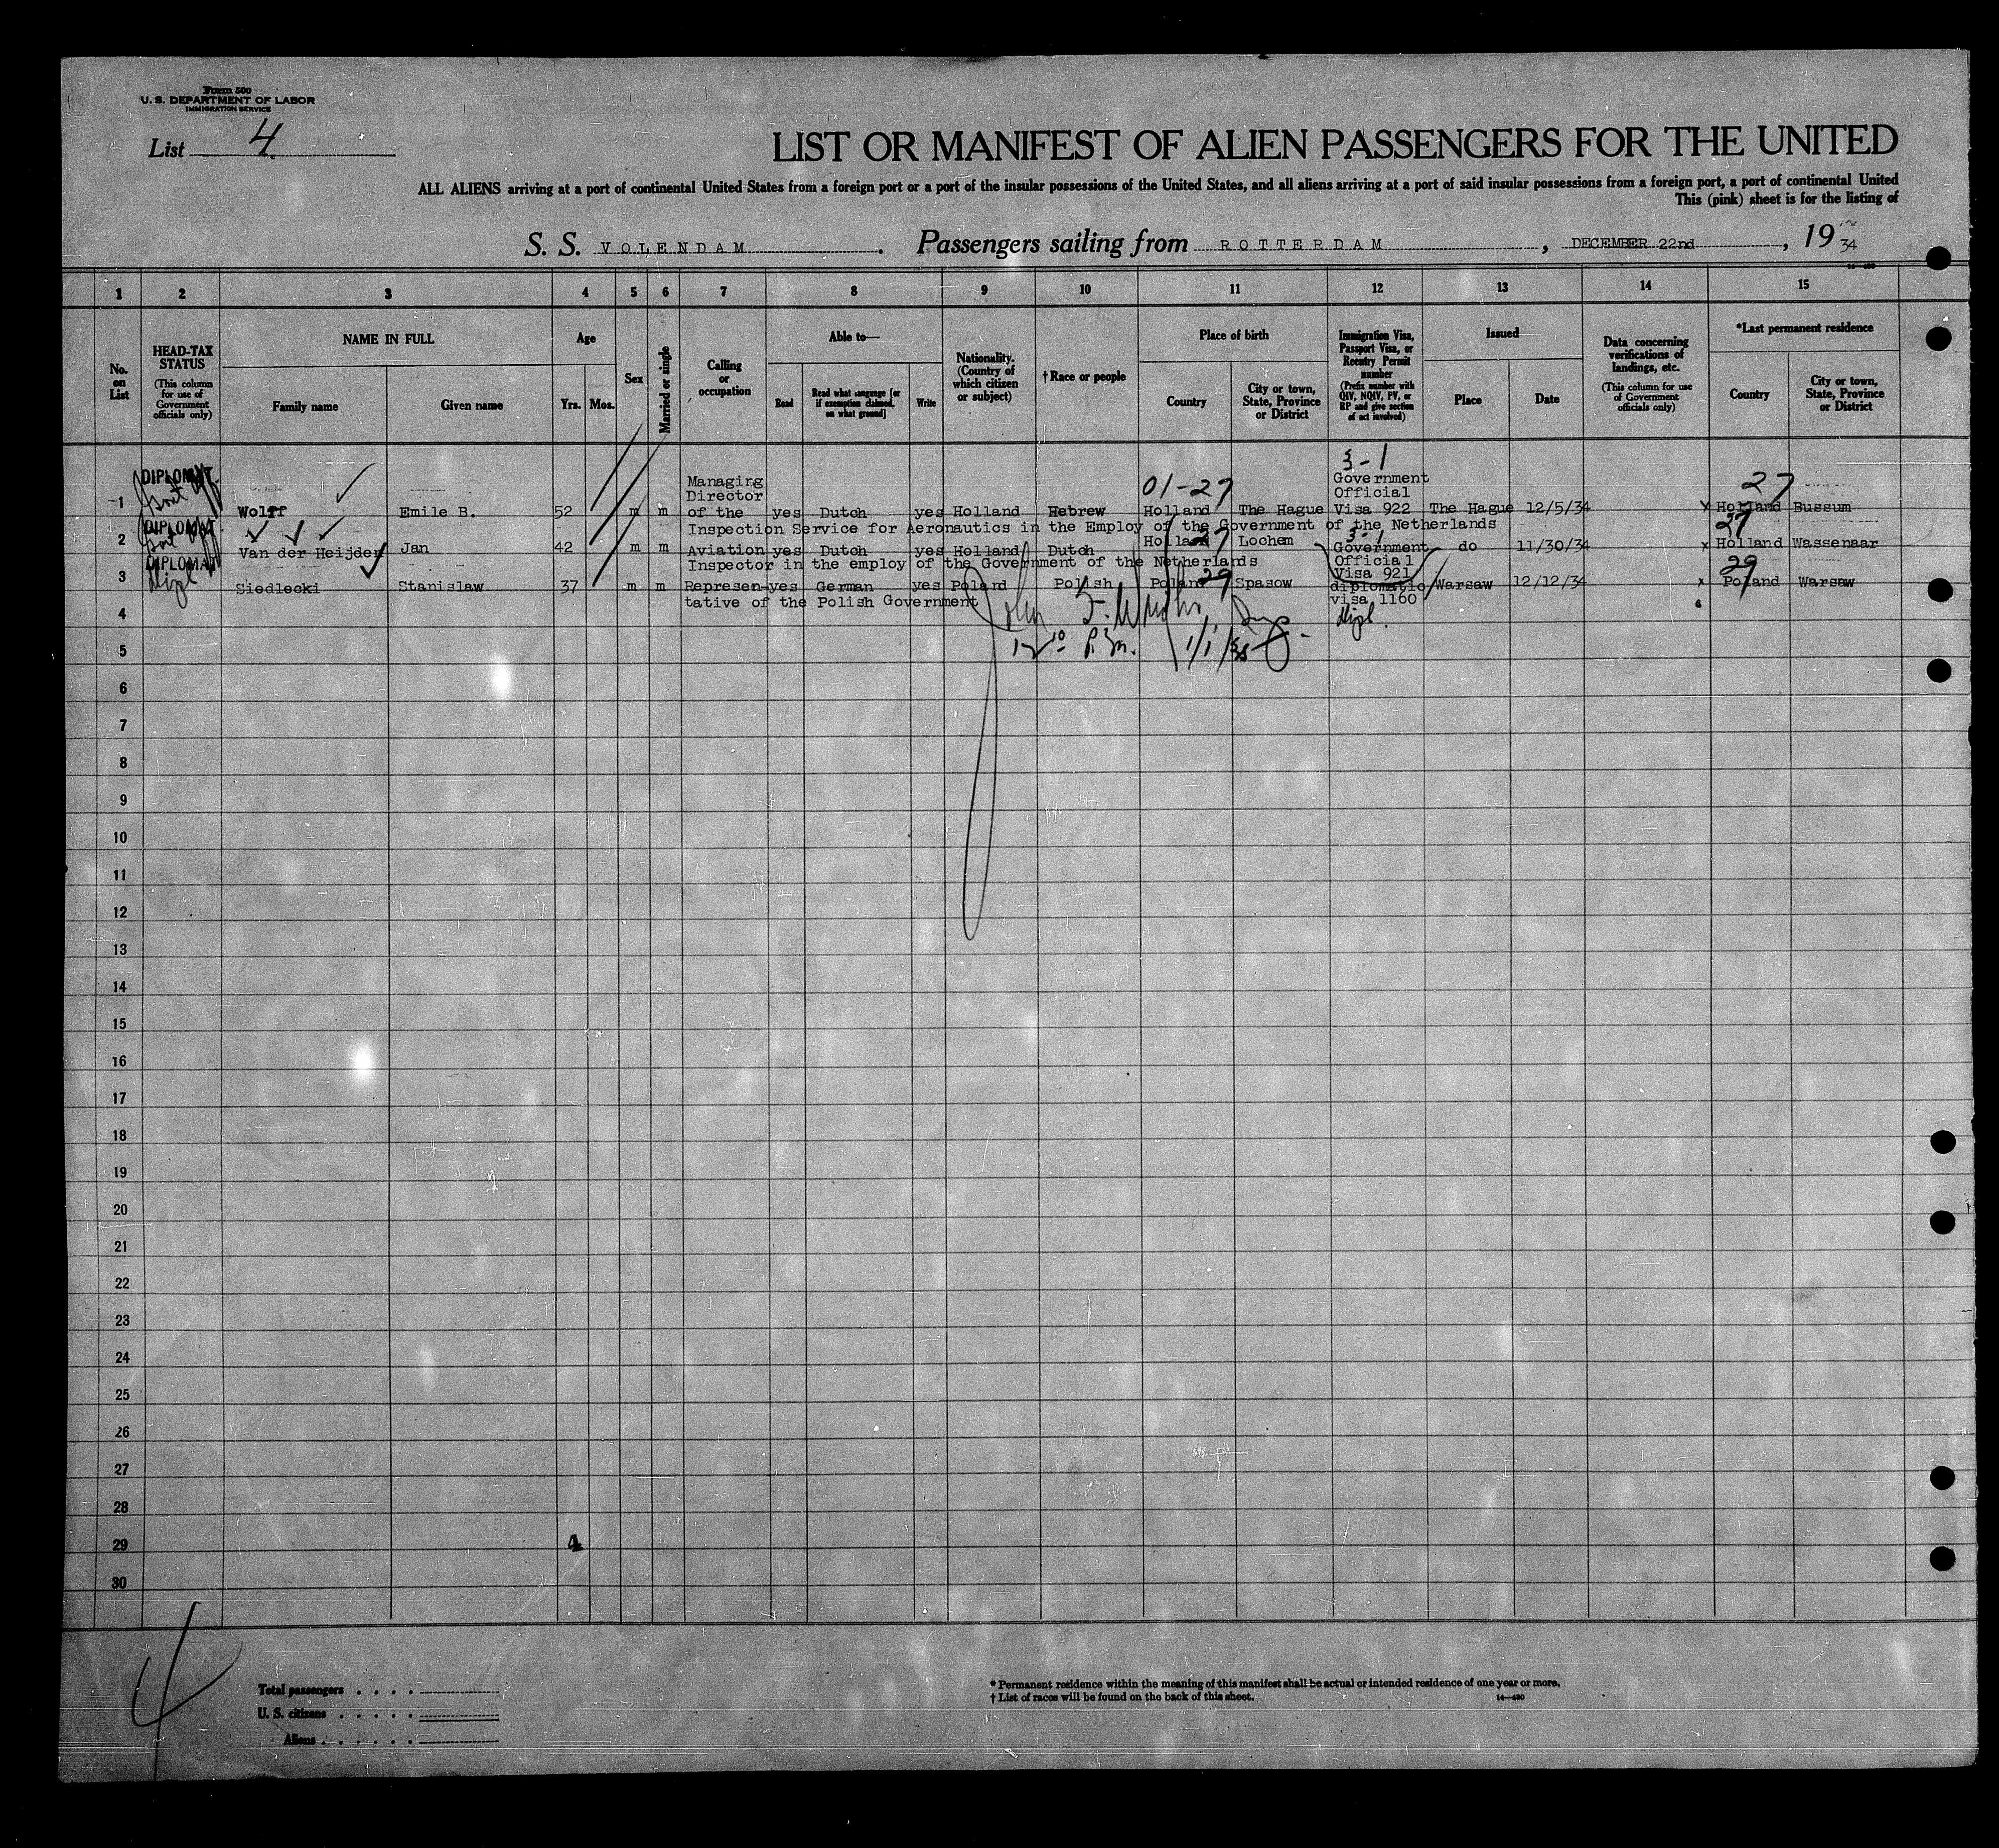 Form 500
U. S. DEPARTMENT OF LABOR
IMMIGRATION SERVICE
List 4
LIST OR MANIFEST OF ALIEN PASSENGERS FOR THE UNITED
ALL ALIENS arriving at a port of continental United States from a foreign port or a port of the insular possessions of the United States, and all aliens arriving at a port of said insular possessions from a foreign port, a port of continental United
This (pink) sheet is for the listing of
S. S. VOLENDAM. Passengers sailing from ROTTERDAM, DECEMBER 22nd, 1934
1 2 3 4 5 6 7 8 9 10 11 12 13 14 15
No. on List
HEAD-TAX STATUS
(This column for use of Government officials only)
NAME IN FULL
Family name
Given name
Age
Yrs. Mos.
Sex
Married or single
Calling or occupation
Able to—
Read
Read what language [or if exemption claimed, on what ground]
Write
Nationality. (Country of which citizen or subject)
†Race or people
Place of birth
Country
City or town, State, Province or District
Immigration Visa, Passport Visa, or Reentry Permit number
(Prefix number with QIV, NQIV, PV, or RP and give section of act involved)
Issued
Place
Date
Data concerning verifications of landings, etc.
(This column for use of Government officials only)
*Last permanent residence
Country
City or town, State, Province or District
3-1
DIPLOMAT
Managing
Director
01-27
Government
Official
27
1 Wolff Emile B. 52 m m of the yes Dutch yes Holland Hebrew Holland The Hague Visa 922 The Hague 12/5/34 x Holland Bussum
Inspection Service for Aeronautics in the Employ of the Government of the Netherlands
DIPLOMAT
27
3-1
27
2 Van der Heijden Jan 42 m m Aviation yes Dutch yes Holland Dutch Holland Lochem Government do 11/30/34 x Holland Wassenaar
Inspector in the employ of the Government of the Netherlands
Official
Visa 921
DIPLOMAT
Dipl
29
29
3 Siedlecki Stanislaw 37 m m Represen- yes German yes Poland Polish Poland Spasow diplomatic Warsaw 12/12/34 x Poland Warsaw
tative of the Polish Government
visa 1160
Dipl.
4
5
P.m. 1/1/35
6
7
8
9
10
11
12
13
14
15
16
17
18
19
20
21
22
23
24
25
26
27
28
29 4
30
4
Total passengers
U. S. citizens
Aliens
* Permanent residence within the meaning of this manifest shall be actual or intended residence of one year or more.
† List of races will be found on the back of this sheet.
14—430